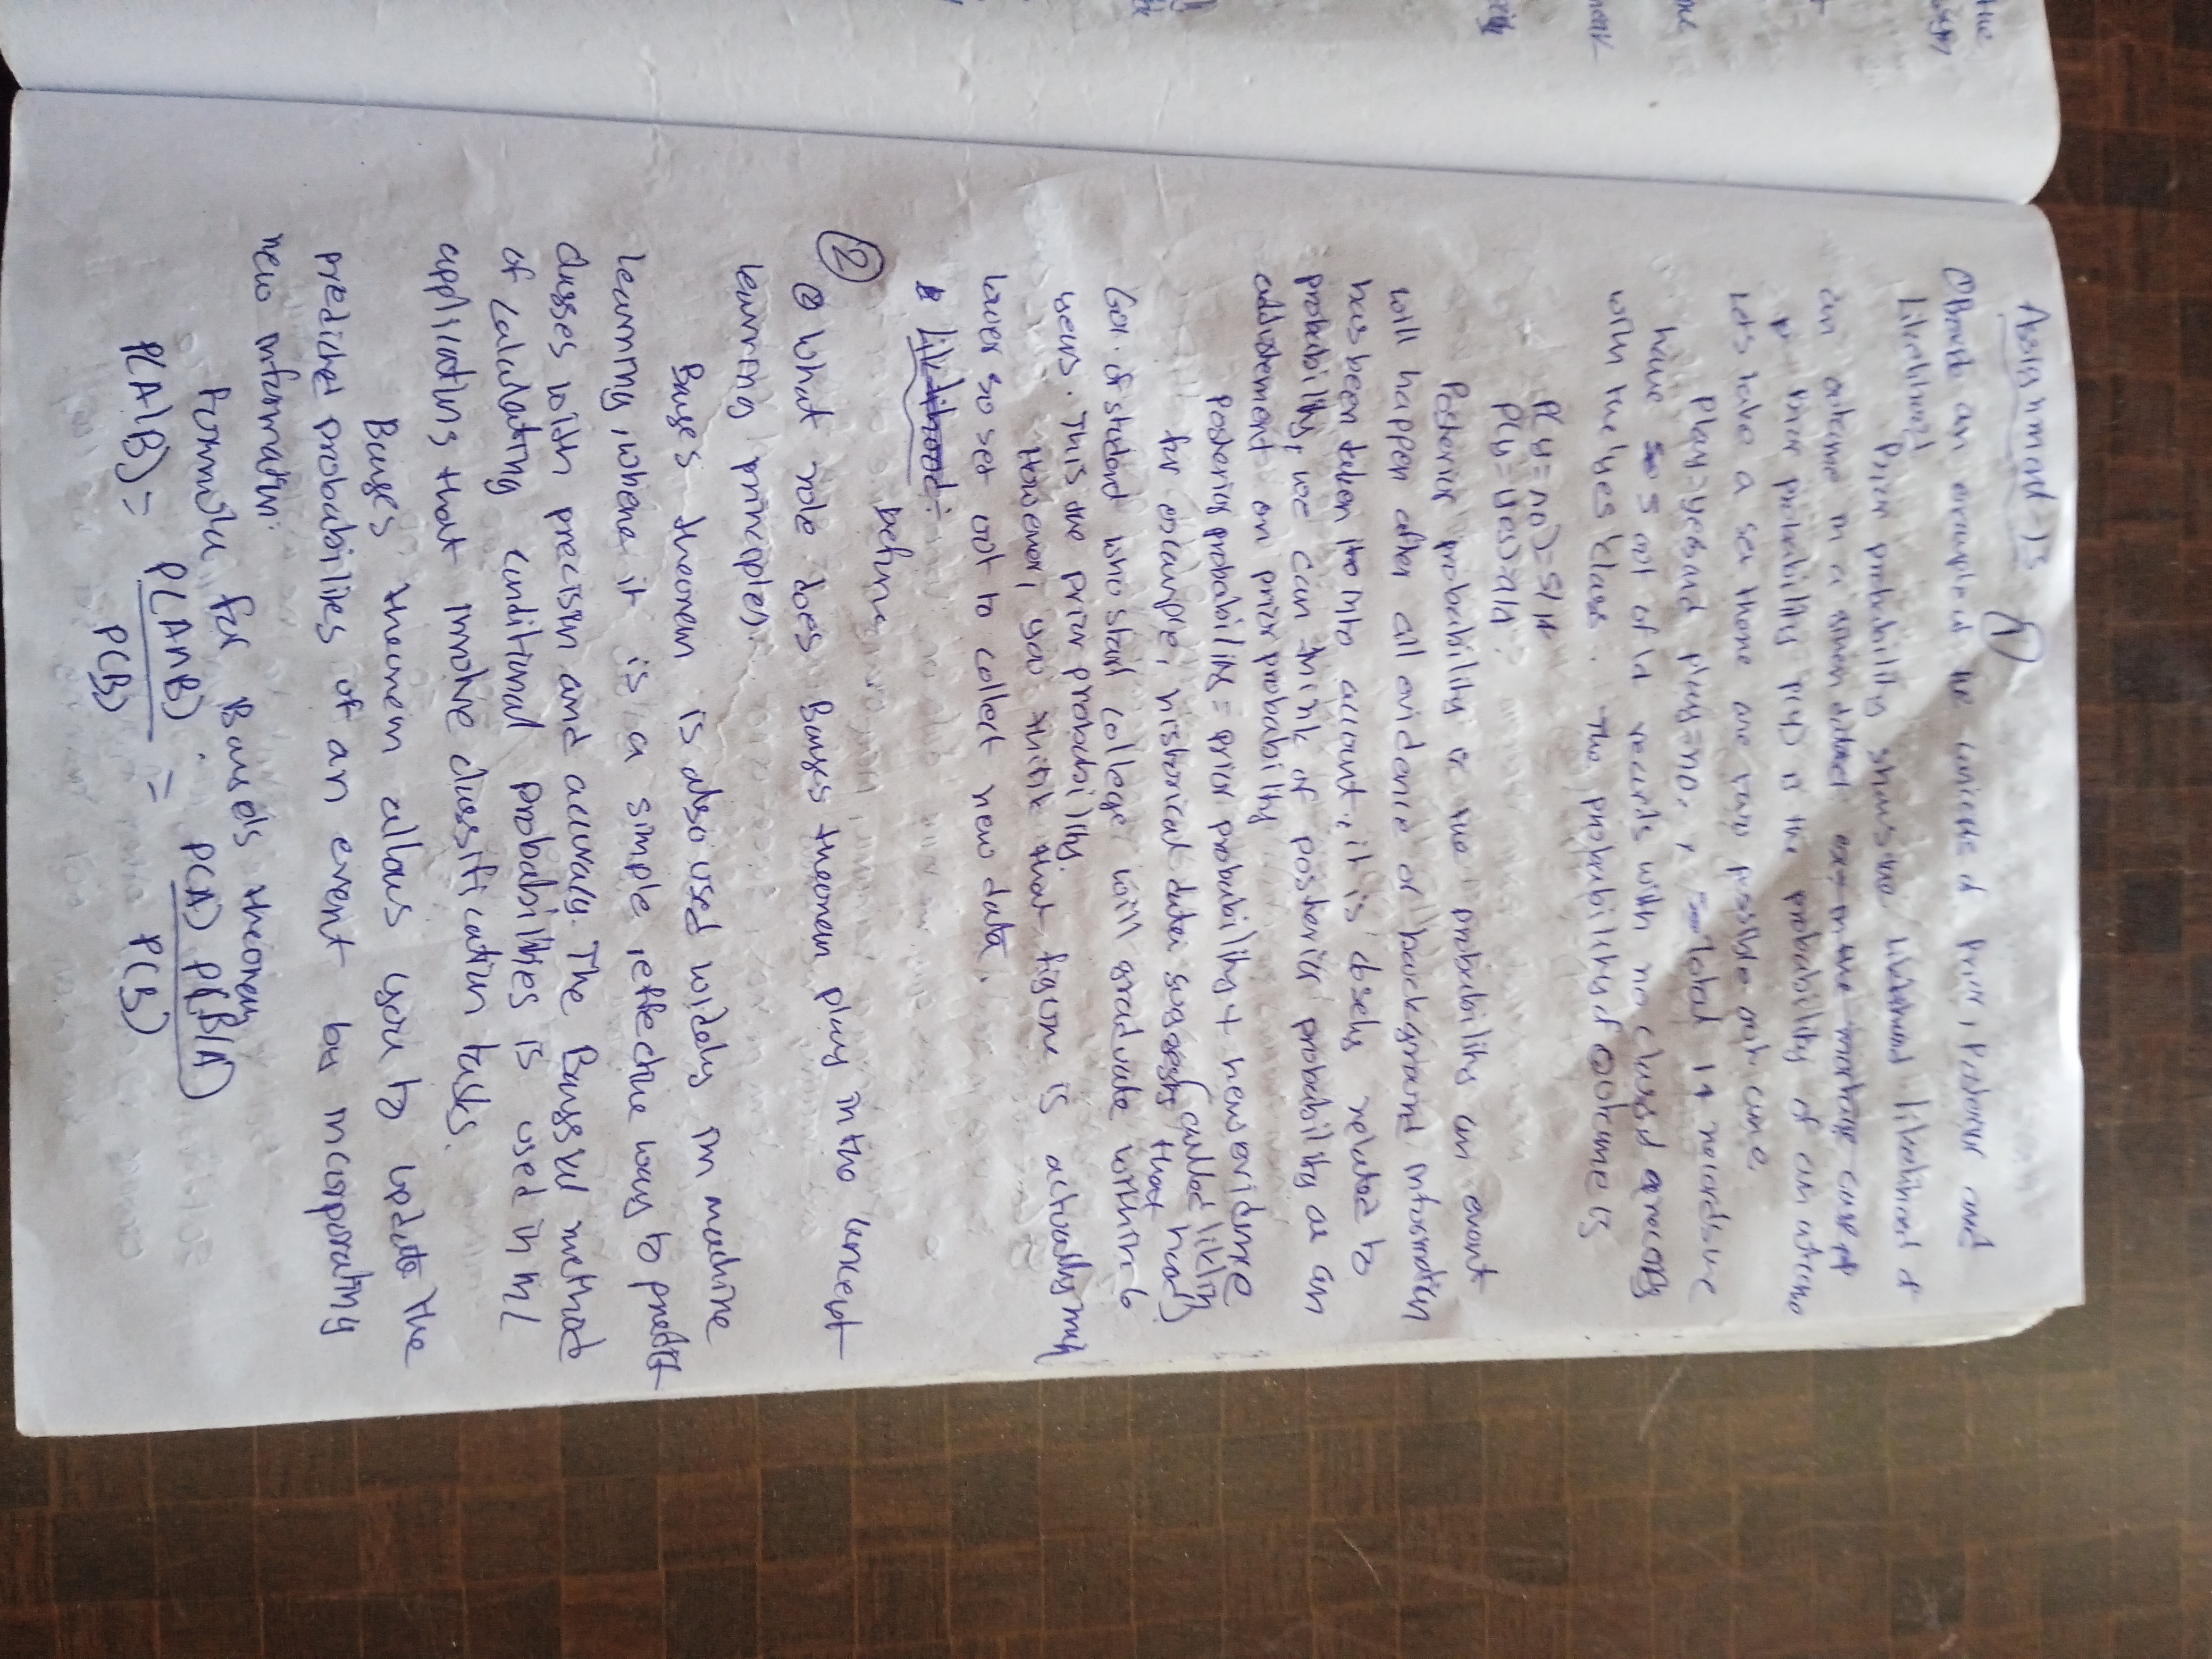 Assignment-13
①
① Provide an example of the concepts of Prior, Posterior and
Likelihood
Prior probability shows the likelihood of
an outcome in a given dataset
prior probability P(y) is the probability of an outcome
Lets take a set there are two possible outcome
Play=yes and play=no,
have 5 out of records with no class and 9 records
with the yes class. The probability of outcome is
P(y=no)=5/14
P(y=yes)=9/14
Posterior probability is the probability an event
will happen after all evidence or background information
has been taken into account, it is closely related to
probability, we can think of posterior probability as an
on prior probability
Posterior probability = prior probability + new evidence
(called likely hood)
for example, historical data suggests that
60% of student who start college will graduate within 6
years. This the prior probability
However, you think that figure is actually much
lower so set out to collect new data.
before
②
② What role does Bayes theorem play in the concept
learning principles.
Bayes theorem is also used widely in machine
learning, where it is a simple, effective way to predict
classes with precision and accuracy. The method
of calculating conditional probabilities is used in ml
applications that involve classification tasks.
Bayes theorem allows you to update the
predicted probabilities of an event by incorporating
new information.
Formula for theorem
P(A|B) = P(A∩B) / P(B) = P(A) P(B|A) / P(B)